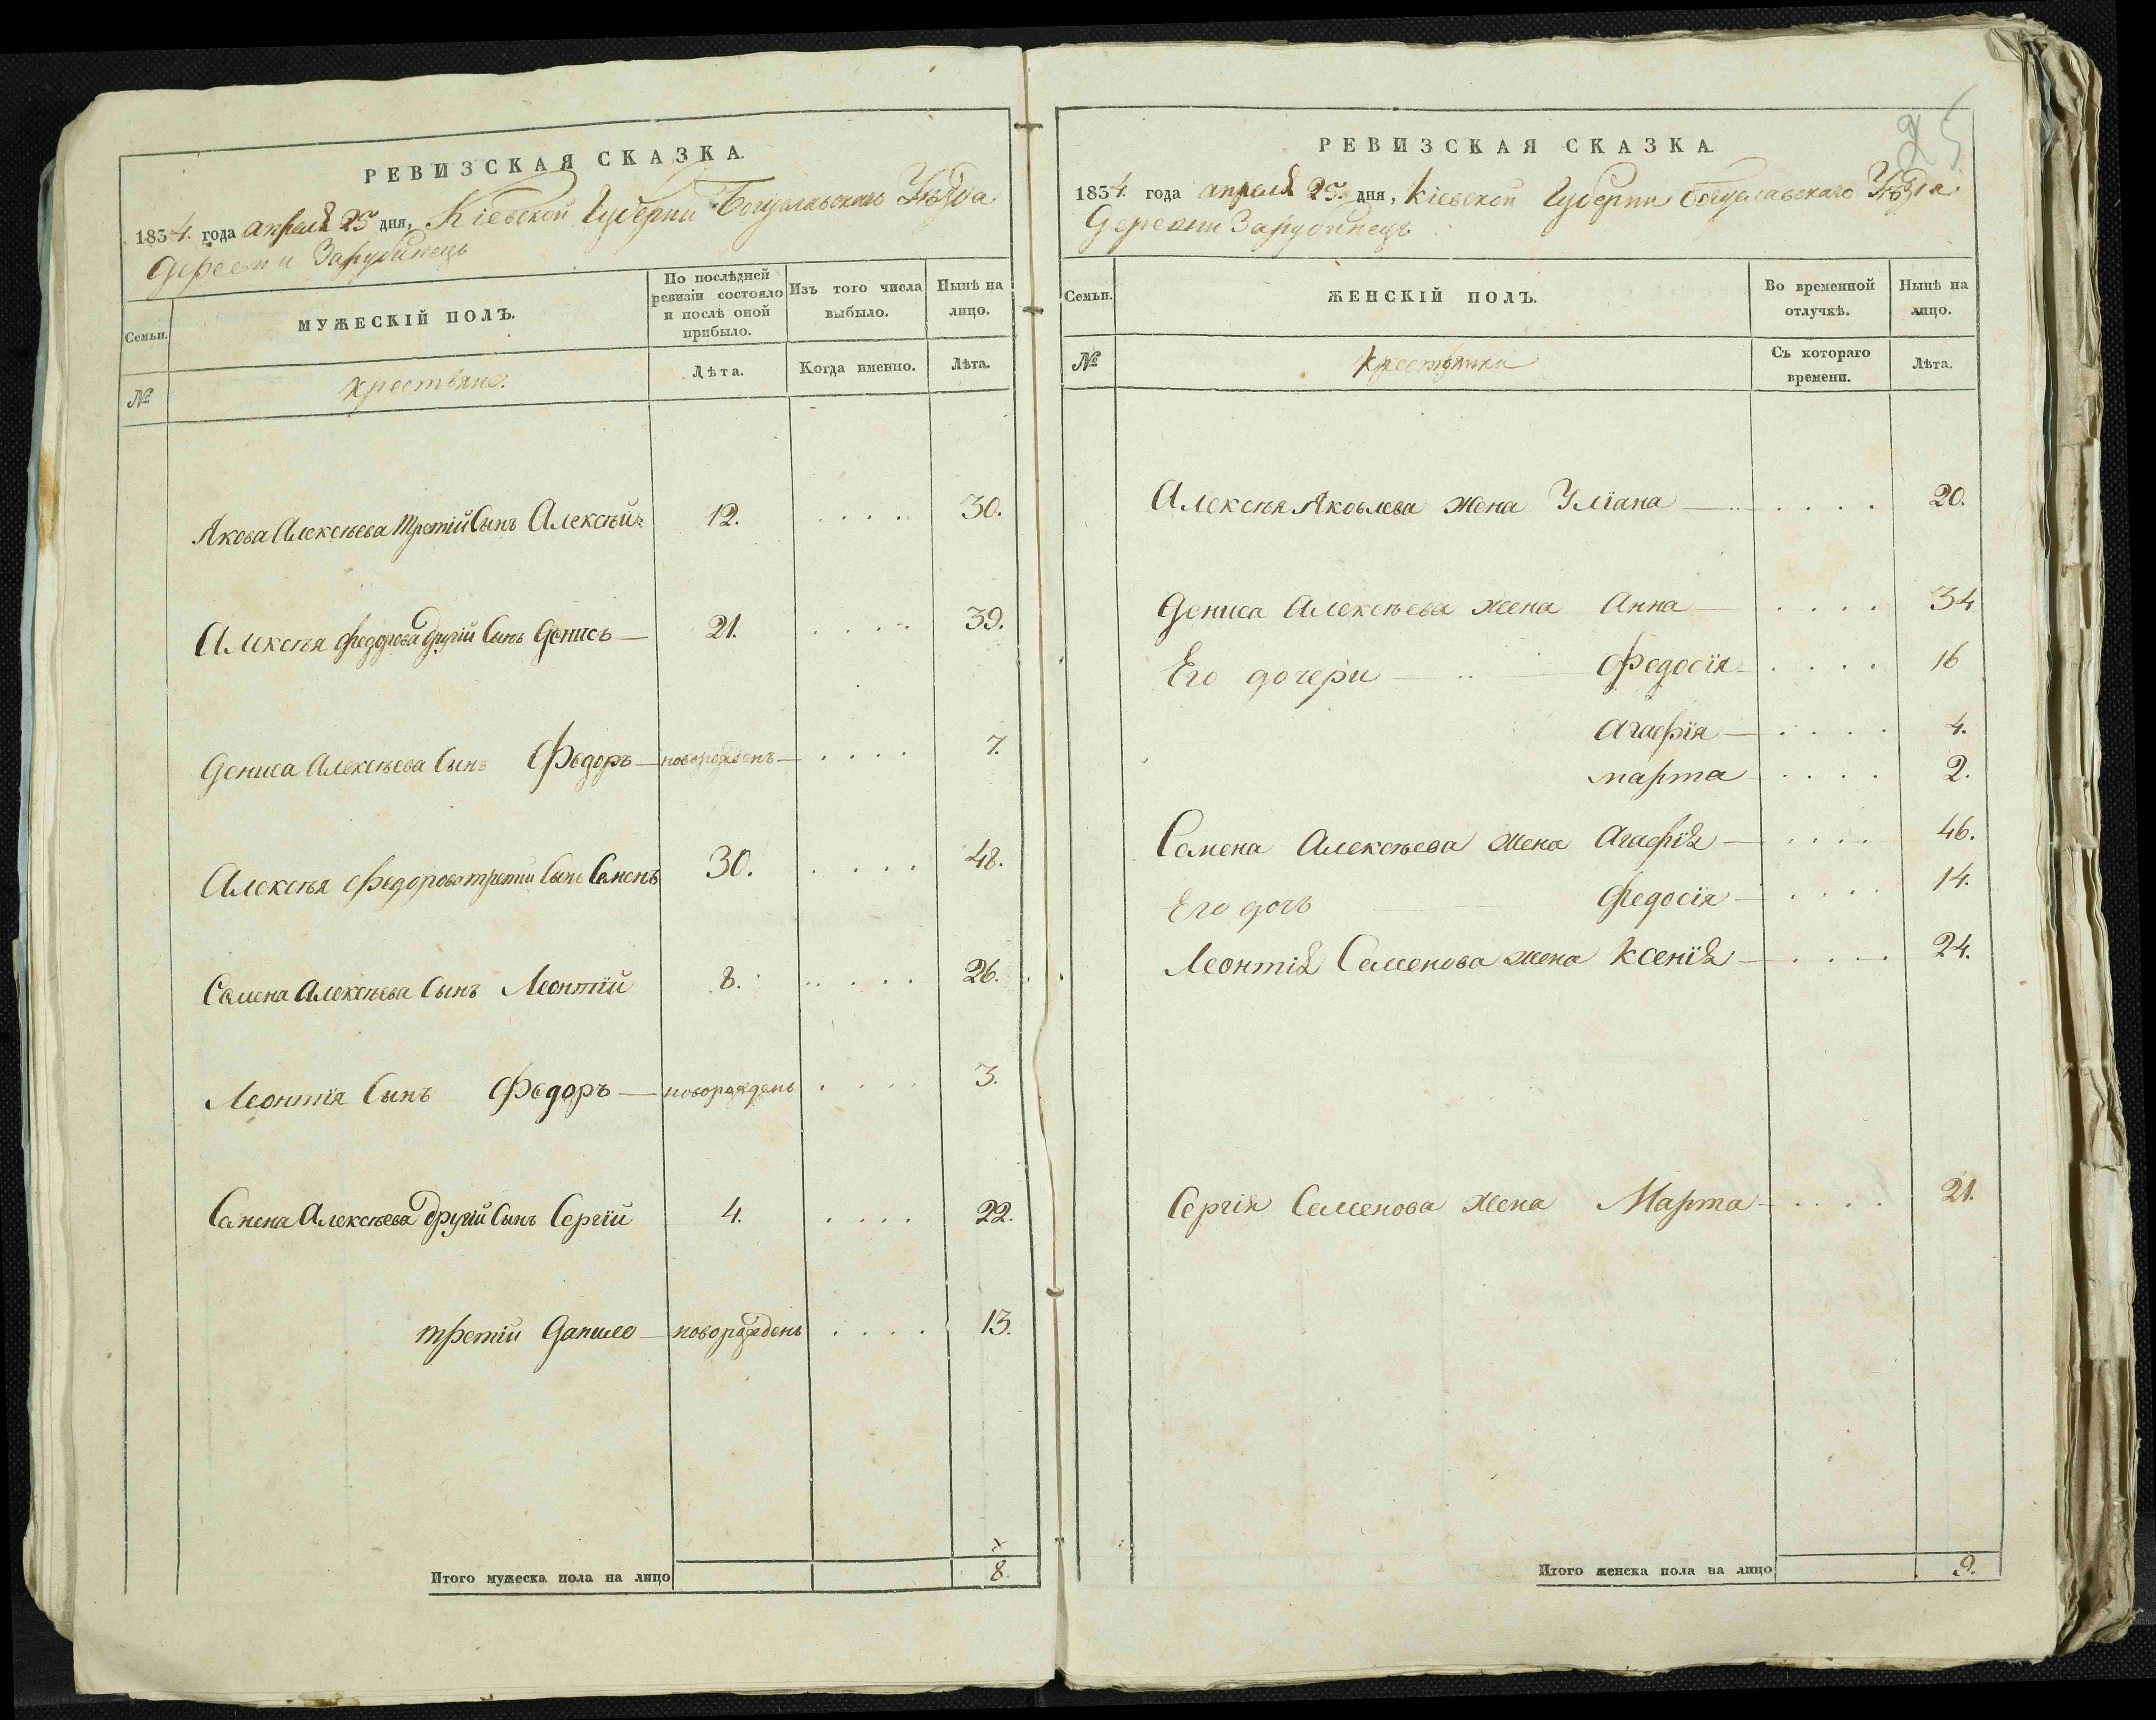 РЕВИЗСКАЯ СКАЗКА.
1834. года апреля 25 дня, Кіевской Губерніи Богуславского Уѣзда
Деревни Зарубинецъ
Семьи.
МУЖЕСКІЙ ПОЛЪ.
По послѣдней ревизіи состояло и послѣ оной прибыло.
Изъ того числа выбыло.
Нынѣ на лицо.
№
Крестьяне.
Лѣта.
Когда именно.
Лѣта.
Якова Алексѣева третій Сынъ Алексѣй 12. . . . . 30.
Алексѣя Федорова другій Сынъ Денисъ — 21. . . . . 39.
Дениса Алексѣева Сынъ Федоръ — новорожденъ — . . . . 7.
Алексѣя Федорова третій Сынъ Семенъ 30. . . . . 48.
Семена Алексѣева Сынъ Леонтій 8. . . . . 26.
Леонтія Сынъ Федоръ — новорожденъ . . . . 3.
Семена Алексѣева другій Сынъ Сергій 4. . . . . 22.
третій Данило — новорожденъ . . . . 13.
Итого мужеска пола на лицо 8.
25
РЕВИЗСКАЯ СКАЗКА.
1834 года апреля 25. дня, Кіевской Губерніи Богуславскаго Уѣзда
Деревни Зарубинецъ
Семьи.
ЖЕНСКІЙ ПОЛЪ.
Во временной отлучкѣ.
Нынѣ на лицо.
№
Крестьянки
Съ котораго времени.
Лѣта.
Алексѣя Яковлева жена Уліана — . . . . 20.
Дениса Алексѣева жена Анна — . . . . 34
Его дочери — Федосія — . . . . 16
Агафія — . . . . 4.
Марта . . . . 2.
Семена Алексѣева жена Агафія — . . . . 46.
Его дочь Федосія — . . . . 14.
Леонтія Семенова жена Ксенія — . . . . 24.
Сергія Семенова жена Марта — . . . . 21.
Итого женска пола на лицо 9.